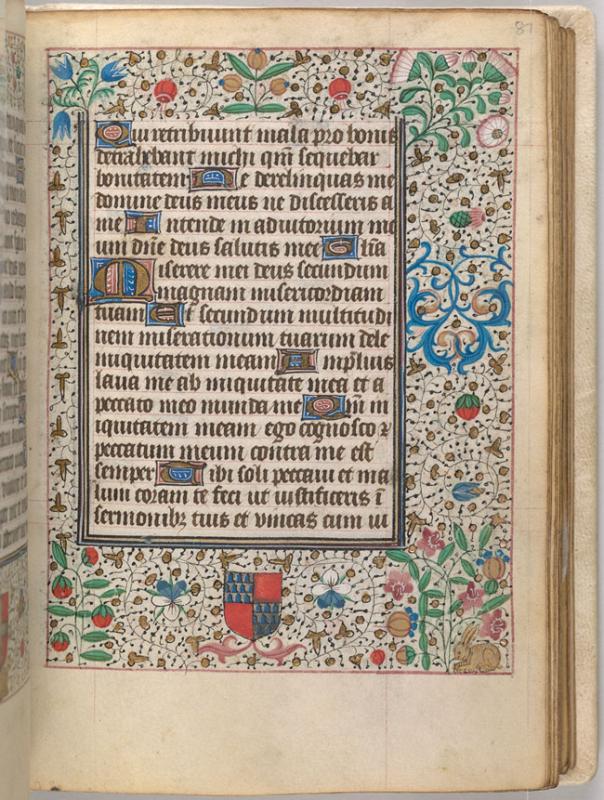 87
Qui retribuunt mala pro bonis
detrahebant michi qm̄ sequebar
bonitatem Ne derelinquas me
domine deus meus ne discesseris a
me Intende in adiutorium me
um dn̄e deus salutis mee Gl̄ia
Miserere mei deus secundum
magnam misericordiam
tuam Et secundum multitudi
nem miserationum tuarum dele
iniquitatem meam Amplius
laua me ab iniquitate mea et a
peccato meo munda me Qm̄ in
iquitatem meam ego cognosco ⁊
peccatum meum contra me est
semper Tibi soli peccaui et ma
lum coram te feci ut iustificeris ī
sermonibꝫ tuis et vincas cum iu